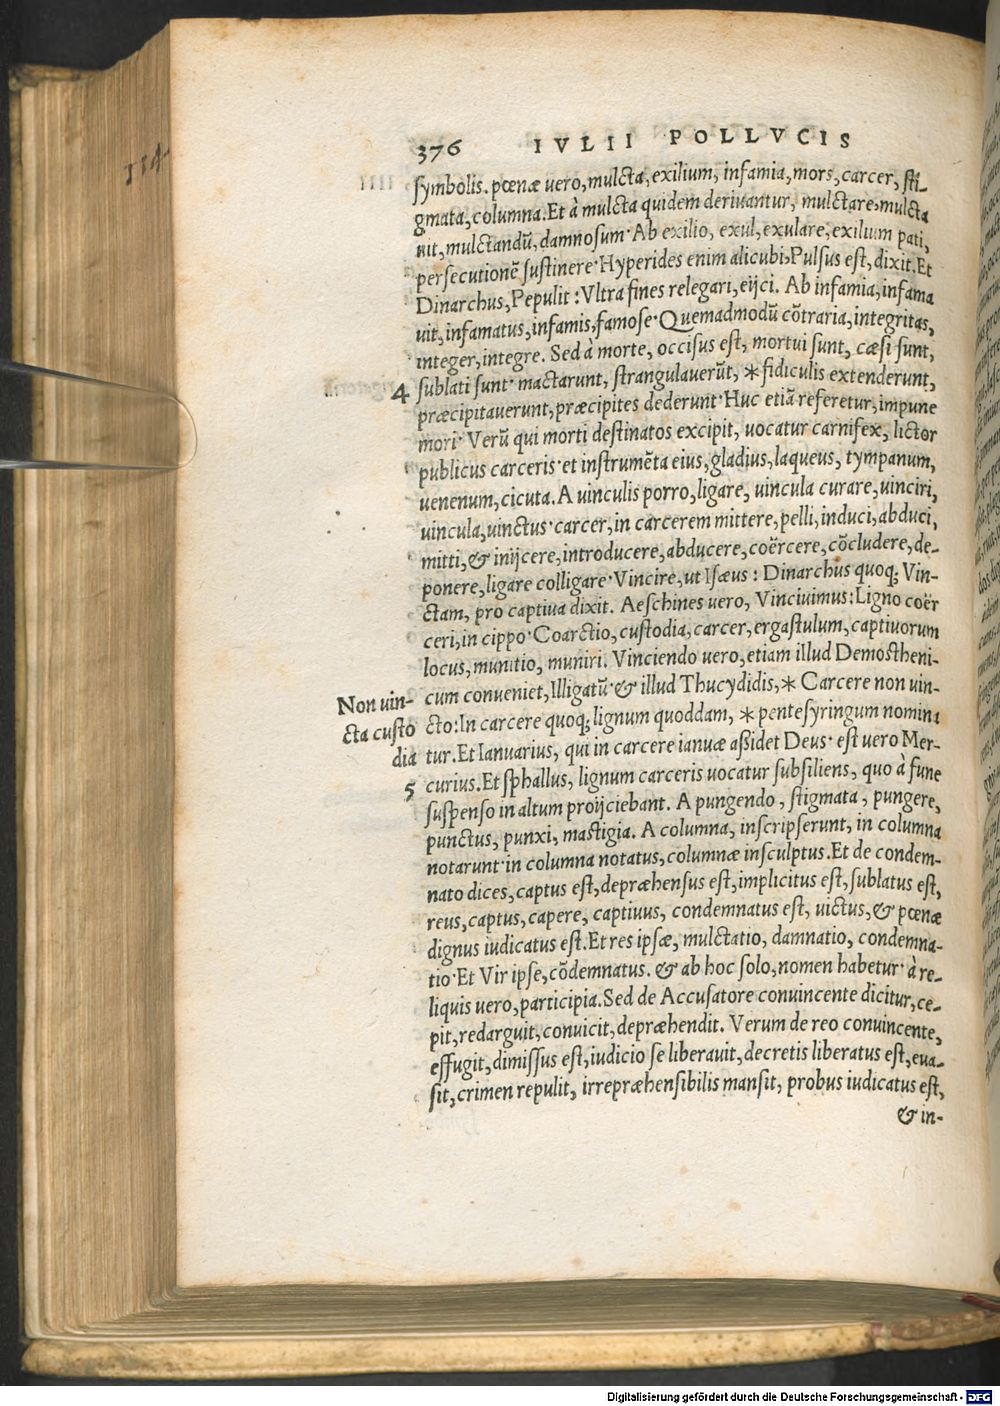 114
376 IVLII POLLVCIS
symbolis. pœnæ uero, mulcta, exilium, infamia, mors, carcer, sti-
gmata, columna. Et à mulcta quidem deriuantur, mulctare, mulcta
uit, mulctandũ, damnosum. Ab exilio, exul, exulare, exilium pati,
persecutionẽ sustinere. Hyperides enim alicubi, Pulsus est, dixit. Et
Dinarchus, Pepulit: Vltra fines relegari, eijci. Ab infamia, infama
uit, infamatus, infamis, famose. Quemadmodũ cõtraria, integritas,
integer, integre. Sed à morte, occisus est, mortui sunt, cæsi sunt,
4 sublati sunt. mactarunt, strangulauerũt, * fidiculis extenderunt,
præcipitauerunt, præcipites dederunt. Huc etiã referetur, impune
mori. Verũ qui morti destinatos excipit, uocatur carnifex, lictor
publicus carceris. et instrumẽta eius, gladius, laqueus, tympanum,
uenenum, cicuta. A uinculis porro, ligare, uincula curare, uinciri,
uincula, uinctus. carcer, in carcerem mittere, pelli, induci, abduci,
mitti, & inijcere, introducere, abducere, coërcere, cõcludere, de-
ponere, ligare colligare. Vincire, ut Isæus: Dinarchus quoq; Vin-
ctam, pro captiua dixit. Aeschines uero, Vinciuimus: Ligno coër
ceri, in cippo. Coarctio, custodia, carcer, ergastulum, captiuorum
locus, munitio, muniri. Vinciendo uero, etiam illud Demostheni-
cum conueniet, Illigatũ. & illud Thucydidis, * Carcere non uin-
Non uin-
cta custo
dia
cto: In carcere quoq; lignum quoddam, * pentesyringum nomina
tur. Et Ianuarius, qui in carcere ianuæ aßidet Deus. est uero Mer-
5 curius. Et sphallus, lignum carceris uocatur subsiliens, quo à fune
suspenso in altum proijciebant. A pungendo, stigmata, pungere,
punctus, punxi, mastigia. A columna, inscripserunt, in columna
notarunt. in columna notatus, columnæ insculptus. Et de condem-
nato dices, captus est, depræhensus est, implicitus est, sublatus est,
reus, captus, capere, captiuus, condemnatus est, uictus, & pœnæ
dignus iudicatus est. Et res ipsæ, mulctatio, damnatio, condemna-
tio. Et Vir ipse, cõdemnatus. & ab hoc solo, nomen habetur. à re-
liquis uero, participia. Sed de Accusatore conuincente dicitur, ce-
pit, redarguit, conuicit, depræhendit. Verum de reo conuincente,
effugit, dimissus est, iudicio se liberauit, decretis liberatus est, eua-
sit, crimen repulit, irrepræhensibilis mansit, probus iudicatus est,
& in-
Digitalisierung gefördert durch die Deutsche Forschungsgemeinschaft - DFG